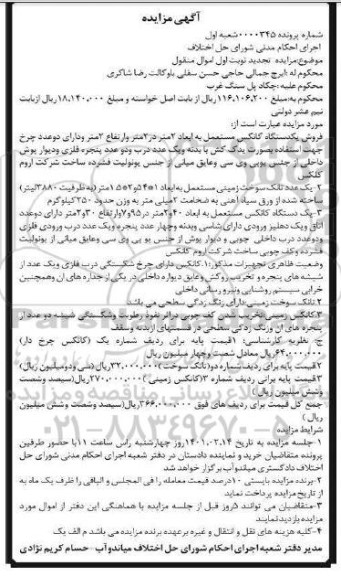 آگهی مزایده
شماره پرونده ۰۰۰۰۳۴۵شعبه اول
اجرای احکام مدنی شورای حل اختلاف
موضوع:مزایده تجدید نوبت اول اموال منقول
محکوم له :ایرج جمالی حاجی حسن سفلی باوکالت رضا شاکری
محکوم علیه:چکاد پل سنگ غرب
محکوم به:مبلغ ۱۱۶،۱۰۶،۲۰۰ریال از بابت اصل خواسته و مبلغ ۱۸،۱۴۰،۰۰۰ ریال ازبابت
نیم عشر دولتی
مورد مزایده عبارت است از:
فروش یکدستگاه کانکس مستعمل به ابعاد ۲متر در۲متر وارتفاع ۳متر ودارای دوعدد چرخ
جهت استفاده بصورت یدک کش با بدنه ویک عدد درب ودو عدد پنجره فلزی ودیوار پوش
داخلی از جنس یوپی وی سی وعایق میانی از جنس یونولیت فشرده ساخت شرکت اروم
کانکس
۲-یک عدد تانک سوخت زمینی مستعمل به ابعاد ۱*۲٫۵*۱٫۵متر (به ظرفیت ۳۸۸۰لیتر)
ساخته شده از ورق سیاه آهنی به ضخامت ۲میلی متر به وزن حدود ۲۵۰کیلوگرم
۳-یک دستگاه کانکس مستعمل به ابعاد ۲٫۴۰متر در۷٫۹۵وارتفاع ۲٫۳۰متر دارای دوعدد
اتاق ویک دهلیز ورودی دارای شاسی وبدنه وچهار عدد پنجره ویک عدد درب ورودی فلزی
ودوعدد درب داخلی چوبی و دیوار پوش از جنس یو پی وی سی وعایق میانی از یونولیت
فشرده وکف چوبی ساخت شرکت اروم کانکس
وضعیت ظاهری تجهیزات مذکور:۱.کانکس دارای چرخ شکستگی درب فلزی ویک عدد از
شیشه های پنجره و تخریب روکش وعایق دیواره داخلی در یکی از جداره های آن وهمچنین
خرابی سیستم روشنایی ونیرو رسانی داخلی
۲.تانک سوخت زمینی دارای رنگ زدگی سطحی می باشد
۳.کانکس زمینی:تخریب شدن کف چوبی دراثر نفوذ رطوبت وشکستگی شیشه دو عدد از
پنجره های آن وزنگ زدگی سطحی در قسمتهای ازبدنه وسقف
ج: نظریه کارشناسی: (قیمت پایه برای ردیف شماره یک (کانکس چرخ دار)
۶۴،۰۰۰،۰۰۰ریال معادل شصت وچهار میلیون ریال
۲.قیمت پایه برای ردیف شماره دو(تانک سوخت)۳۲،۰۰۰،۰۰۰ریال(سی ودومیلیون ریال)
۳.قیمت پایه برای ردیف شماره ۳(کانکس زمینی)۲۷۰،۰۰۰،۰۰۰ریال
جمع کل قیمت برای ردیف های فوق ۳۶۶،۰۰۰،۰۰۰ریال(سیصد وشصت وشش میلیون
ریال)
شرایط مزایده
۱-جلسه مزایده به تاریخ ۱۴۰۱،۰۲،۱۴روز چهارشنبه راس ساعت ۱۱با حضور طرفین
پرونده متقاضیان خرید و نماینده دادستان در دفتر شعبه اجرای احکام مدنی شورای حل
اختلاف دادگستری میاندوآب برگزار خواهد شد
۲-برنده مزایده بایستی ۱۰درصد قیمت معامله را فی المجلس و الباقی را ظرف یک ماه به
از تاریخ مزایده پرداخت نماید
۳-متقاضیان می توانند ۵روز قبل از جلسه مزایده با هماهنگی این دفتر از اموال مورد
مزایده بازدید نمایند
۴-کلیه هزینه های نقل و انتقال و غیره برعهده برنده مزایده می باشد م الف یک
مدیر دفتر شعبه اجرای احکام شورای حل اختلاف میاندوآب - حسام کریم نژادی
۰۲۱-۸۸۳۴۹۶۷۰